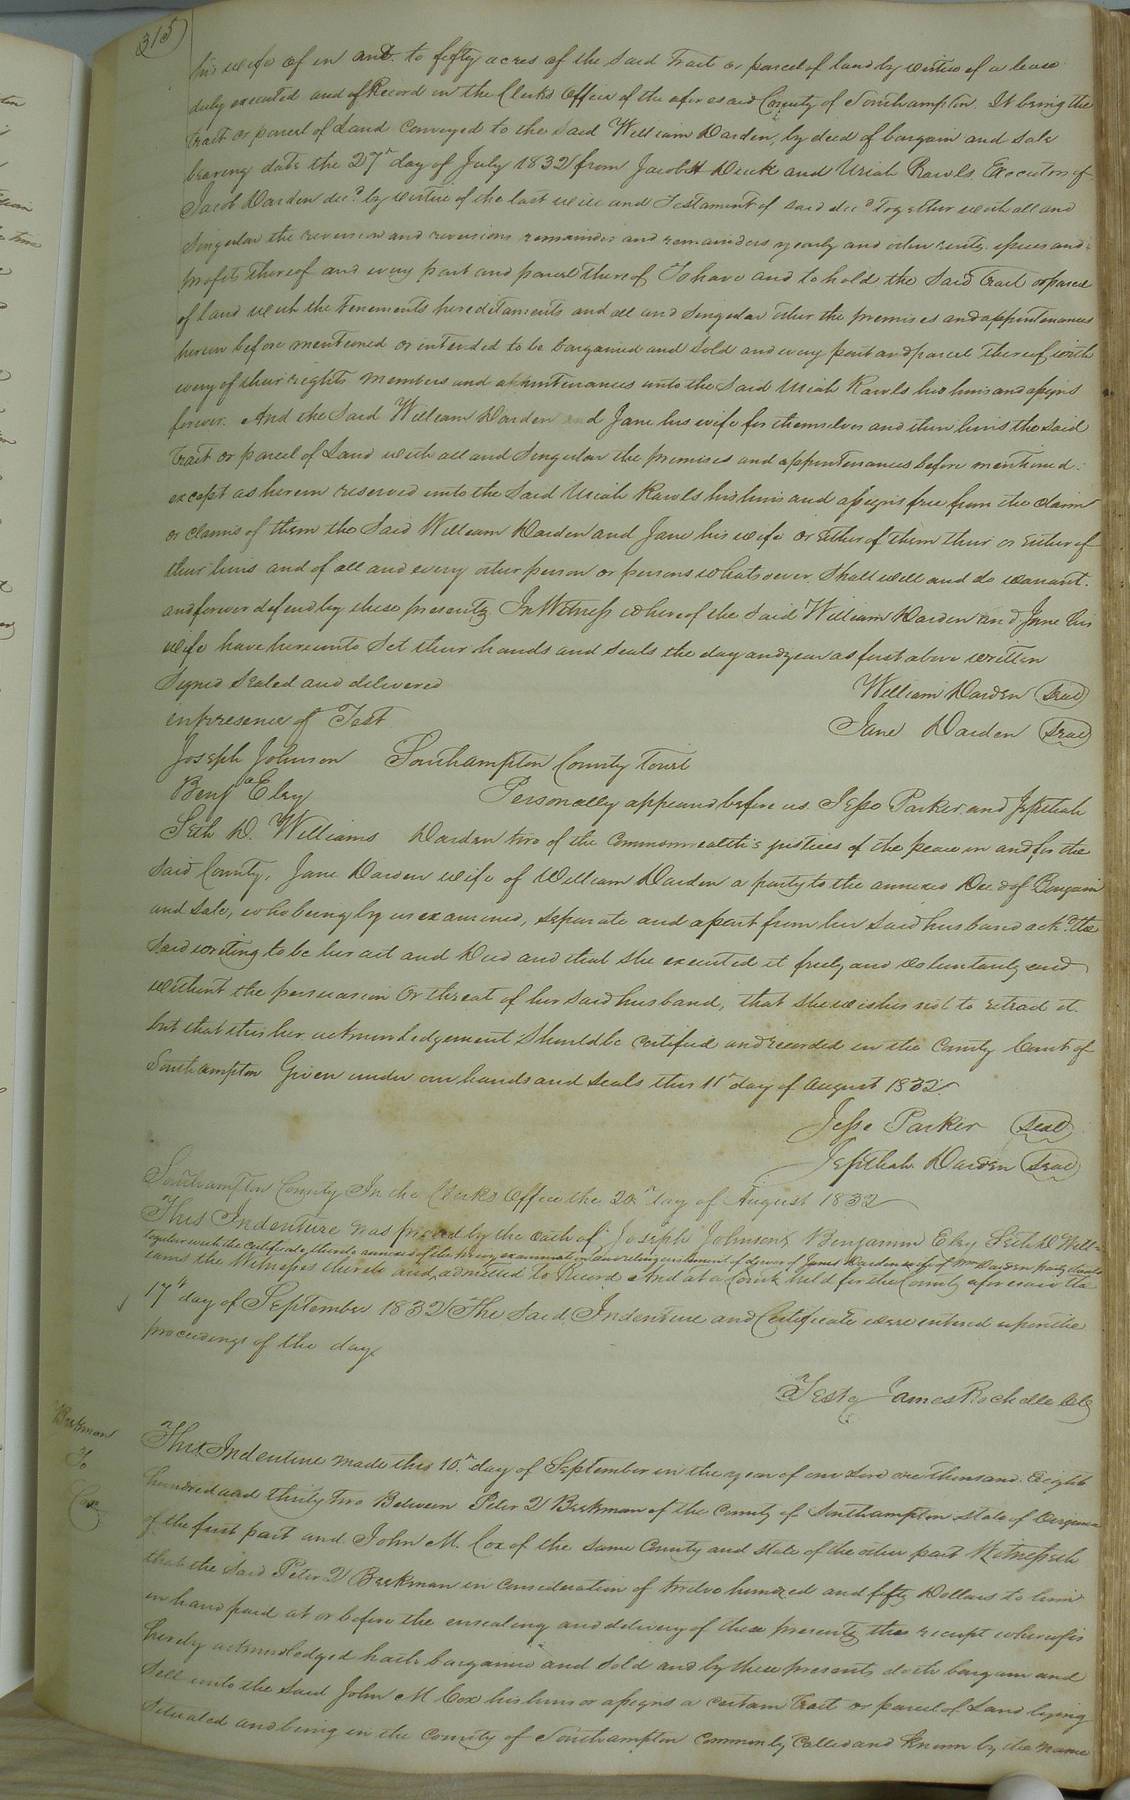 315
his wife of in and to fifty acres of the said Tract or parcel of land by virtue of a lease
duly executed and of Record in the Clerks Office of the aforesaid County of Southampton. It being the
tract or parcel of Land conveyed to the said William Darden, by deed of bargain and sale
bearing date the 27th day of July 1832 from Jacob and Uriah Rawls Executors of
Jacob Darden decd by virtue of the last will and Testament of said decd Together with all and
Singular the reversion and reversions remainder and remainders yearly and other rents issues and
profits thereof and every part and parcel thereof To have and to hold the Said Tract or parcel
of land with the tenements hereditaments and all and Singular other the premises and appurtenances
herein before mentioned or intended to be bargained and Sold and every part and parcel thereof with
every of their rights members and appurtenances unto the Said Uriah Rawls his heirs and assigns
forever. And the Said William Darden and Jane his wife for themselves and their heirs the said
Tract or parcel of Land with all and Singular the premises and appurtenances before mentioned.
except as herein reserved unto the Said Uriah Rawls his heirs and assigns free from the claim
or claims of them the Said William Darden and Jane his wife or Either of them their or Either of
their heirs and of all and every other person or persons whatsoever Shall will and do warrant.
and forever defend by these presents In Witness whereof the Said William Darden and Jane his
wife have hereunto Set their hands and Seals the day and year as first above written
Signed Sealed and delivered William Darden Seal
in presence of Test Jane Darden Seal
Joseph Johnson Southampton County Towit
Benja Eley Personally appeared before us Jesse Parker and Jephthah
Seth D. Williams Darden two of the Commonwealth's justices of the peace in and for the
Said County, Jane Darden wife of William Darden a party to the annexed Deed of Bargain
and Sale, who being by us examined, Separate and apart from her Said husband ackd. the
Said writing to be her act and Deed and that She executed it freely and voluntarily and
without the persuasion Or threat of her Said husband, that She wishes not to retract it.
but that this her acknowledgement Should be certified and recorded in the County Court of
Southampton Given under our hands and Seals this 11th day of August 1832
Jesse Parker Seal
Jephthah Darden Seal
Southampton County In the Clerks Office the 20th day of August 1832
This Indenture was proved by the oath of Joseph Johnson, Benjamin Eley Seth D Will-
together with the certificate thereto annexed of the privy examination and relinquishment of dower of Jane Darden wife of Wm Darden party thereto
iams the Witnesses thereto and, admitted to Record And at a Court held for the County aforesaid the
17th day of September 1832 The Said Indenture and Certificate were entered upon the
proceedings of the day
Teste James Rochelle Clk
Beekman
To
Cox
This Indenture made this 10th day of September in the year of our Lord one thousand Eight
hundred and thirty two Between Peter D Beekman of the County of Southampton State of Virginia
of the first part and John M. Cox of the Same County and State of the other part Witnesseth
that the Said Peter D Beekman in Consideration of twelve hundred and fifty Dollars to him
in hand paid at or before the ensealing and delivery of these presents the receipt whereof is
hereby acknowledged hath bargained and Sold and by these presents doth bargain and
Sell unto the Said John M Cox his heirs or assigns a certain Tract or parcel of Land lying
Situated and being in the County of Southampton Commonly Called and Known by the name